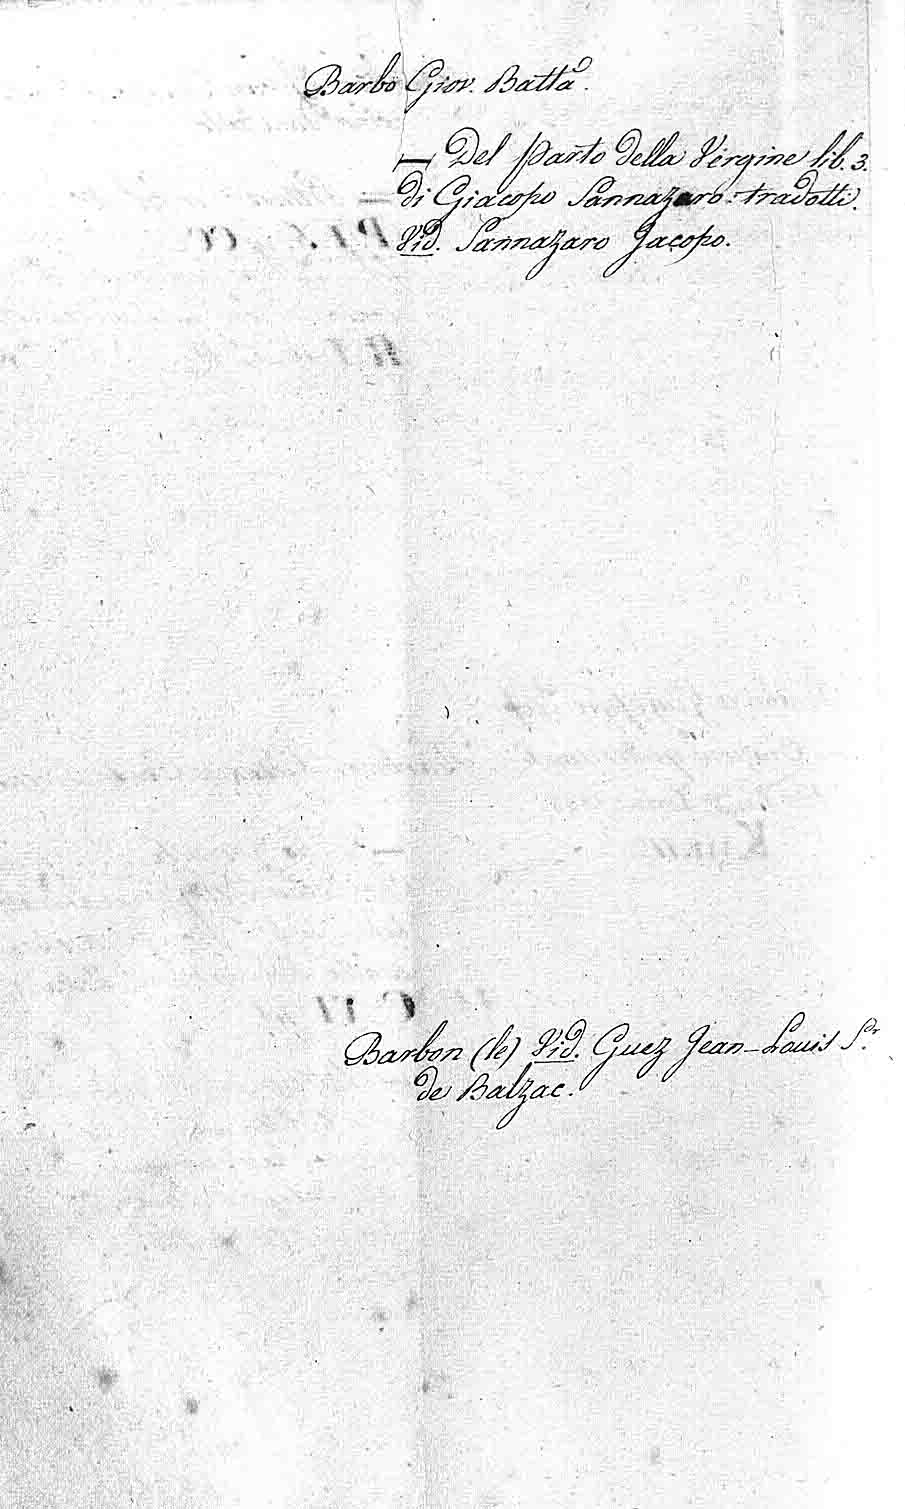 Barbo Giov. Batta.
— Del Parto della Vergine lib. 3.
di Giacopo Sannazaro tradotti.
Vid. Sannazaro Jacopo.
Barbon (le) Vid. Guez Jean-Louis Sr.
de Balzac.